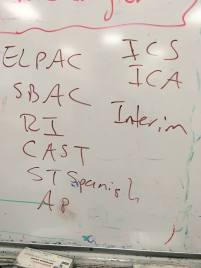 ELPAC
SBAC
RI
CAST
STSpanish
AP
ICS
ICA
Interim